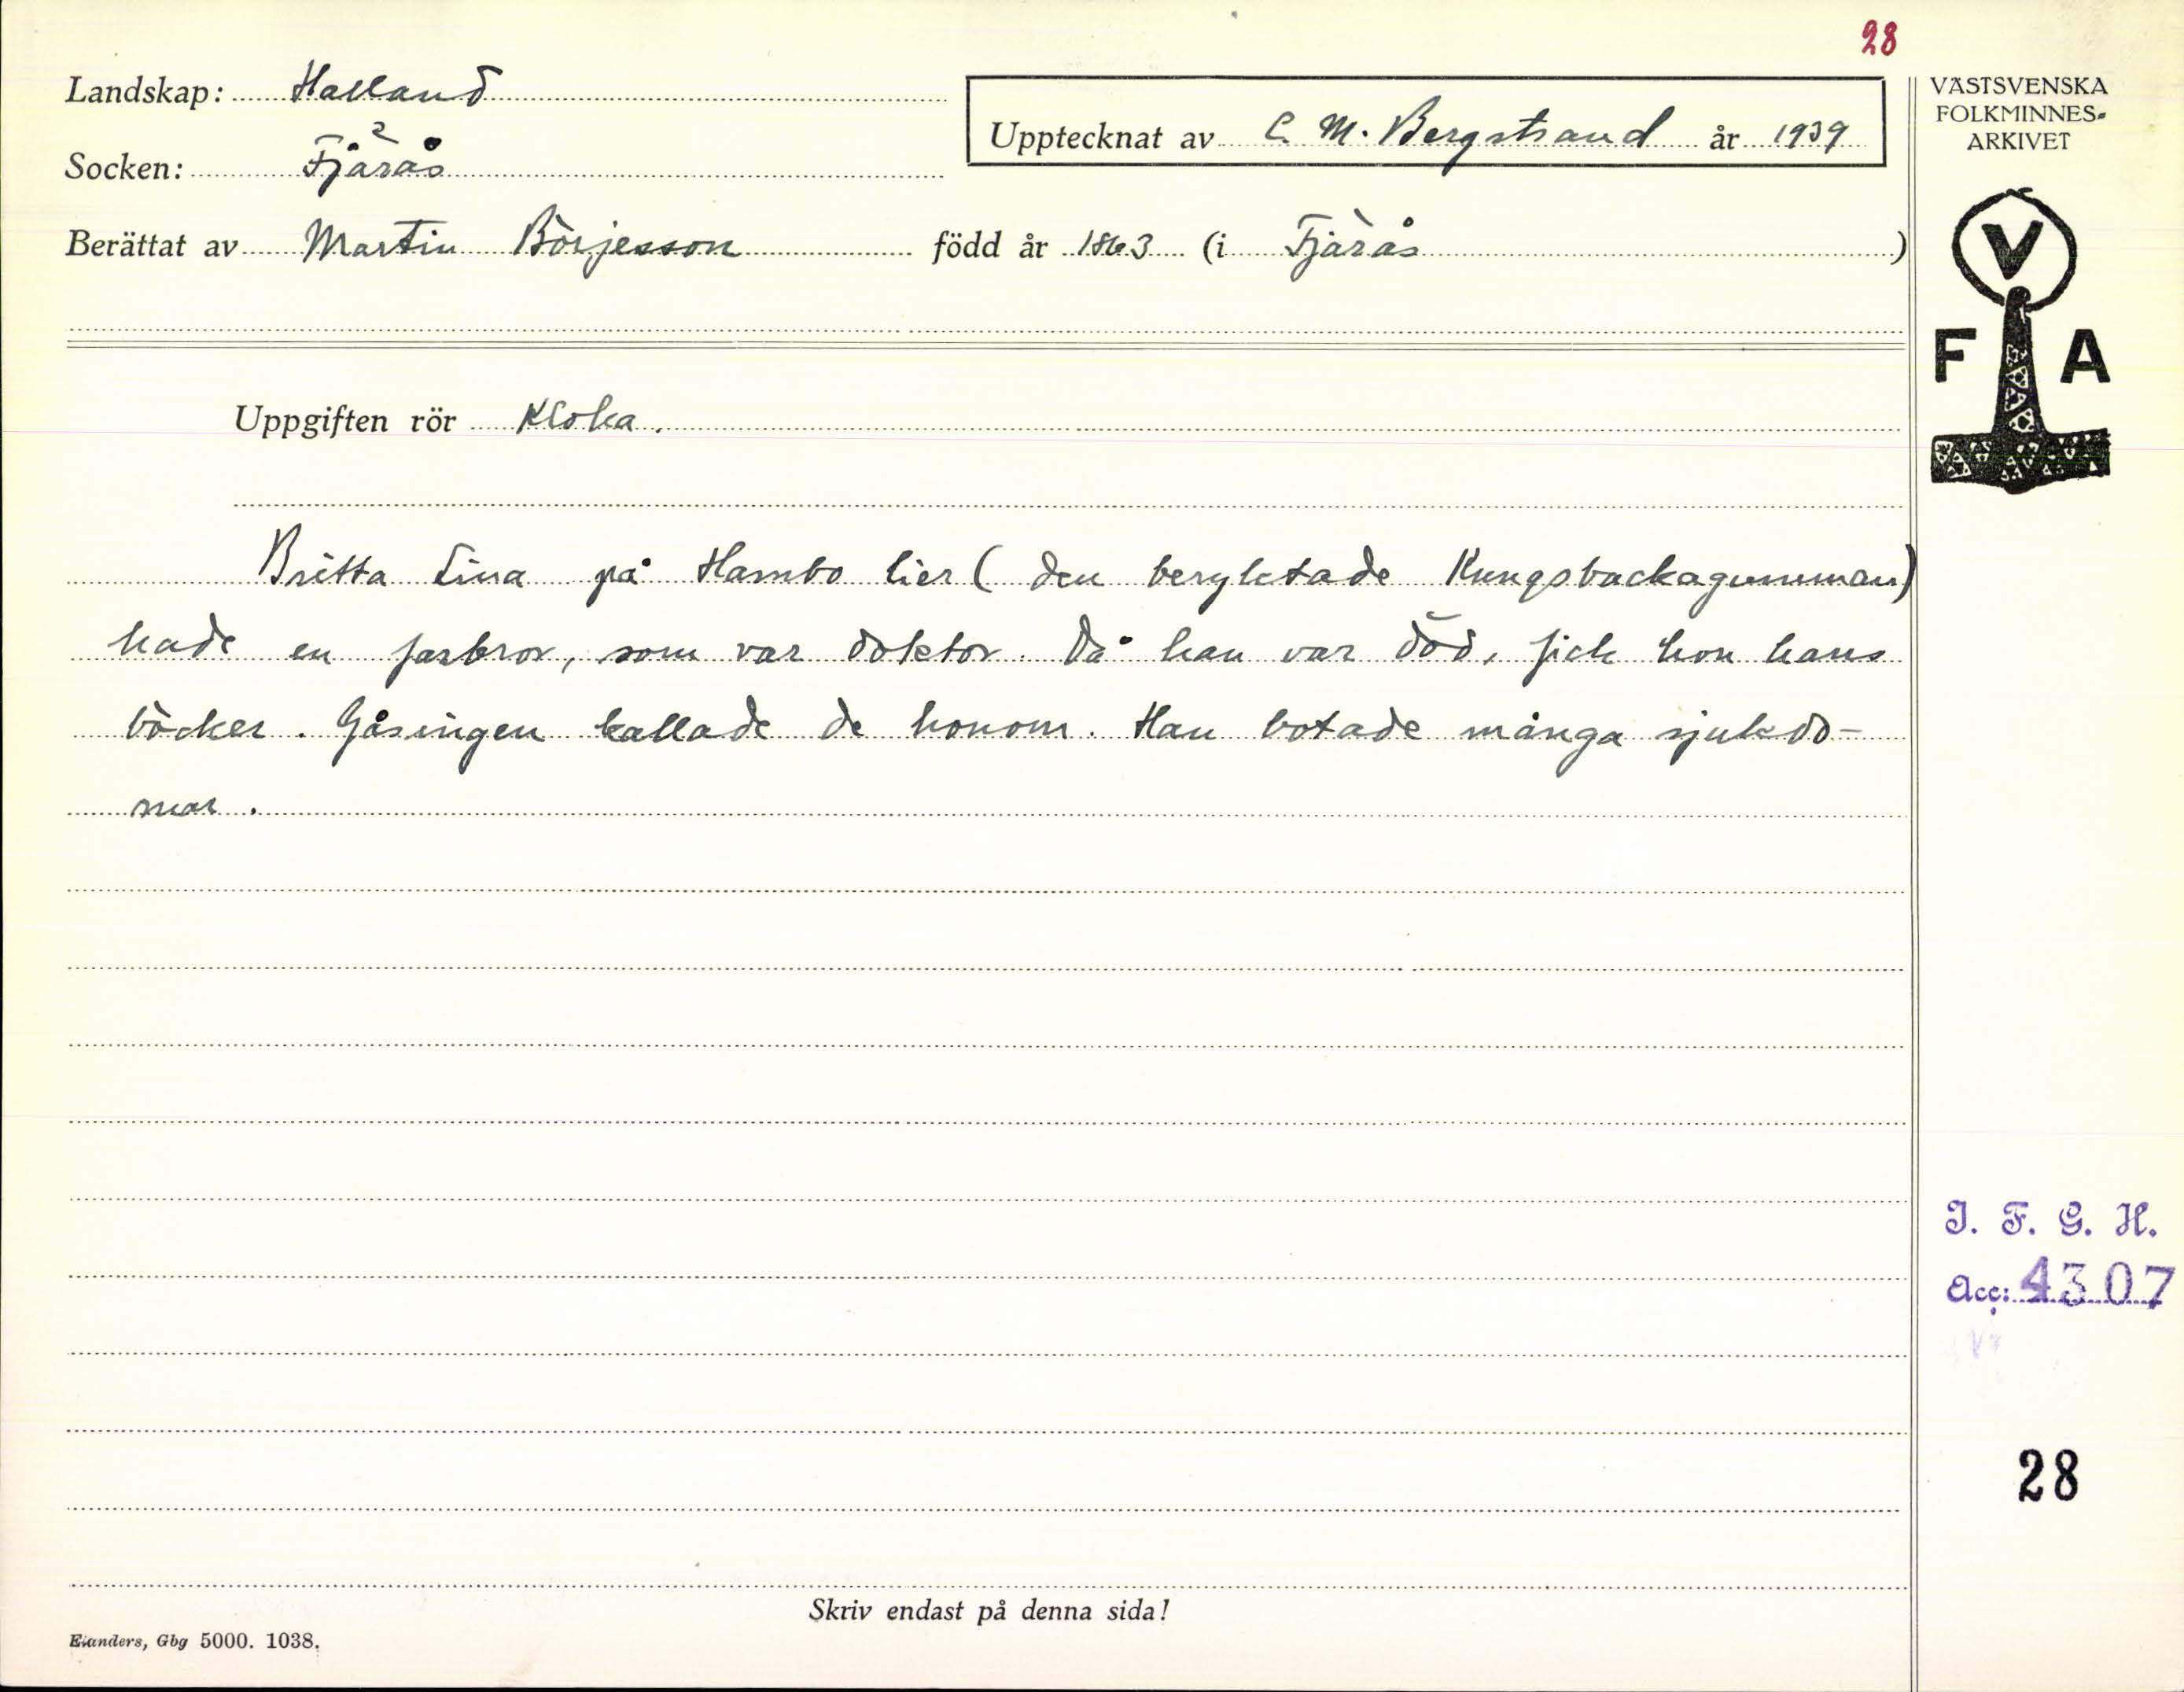 28
Landskap: Halland
Upptecknat av C. M. Bergstrand år 1939
Socken: Fjärås
Berättat av Martin Börjesson född år 1863 (i Fjärås)
Uppgiften rör Kloka.
Britta Lina på Hambo lier (den beryktade Kungsbackagumman)
hade en farbror, som var doktor. Då han var död, fick hon hans
böcker. Gåsingen kallade de honom. Han botade många sjukdo-
mar.
Skriv endast på denna sida!
Elanders, Gbg 5000. 1038.
VÄSTSVENSKA
FOLKMINNES-
ARKIVET
V
F A
I. F. G. H.
Acc: 4307
28